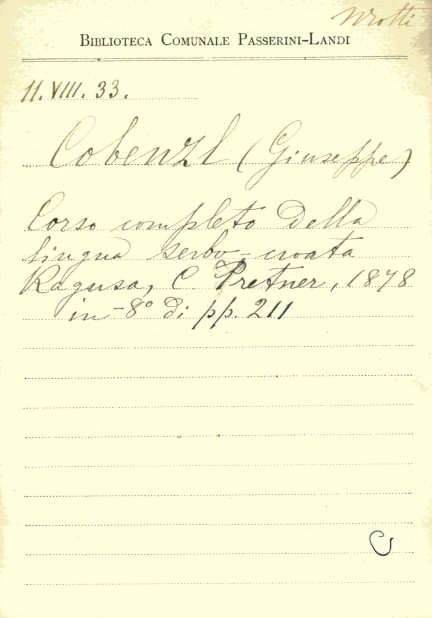 BIBLIOTECA COMUNALE PASSERINI-LANDI
11.VIII.33.
Cobenzl (Giuseppe)
Corso completo della
lingua serbo-croata
Ragusa, C Pretner, 1878
in-8° di pp. 211
C